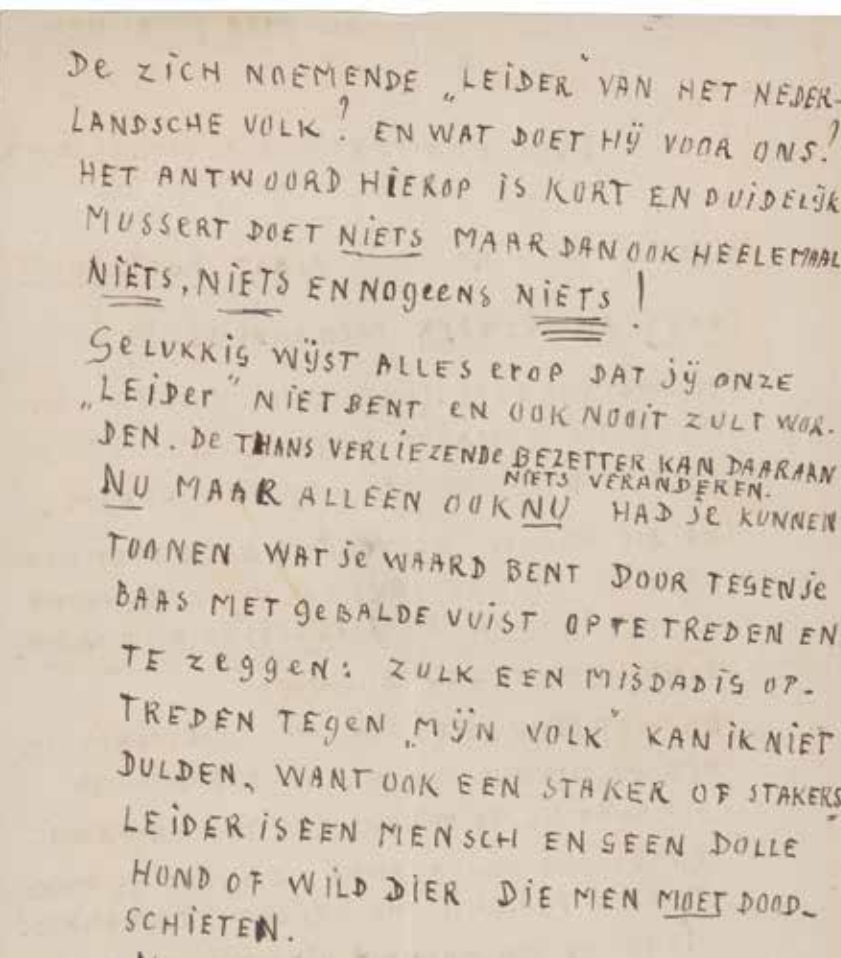 De ZiCH NOEMENDE „LEiDER” VAN HET NEDER-
LANDSCHE VOLK? EN WAT DOET HIJ VOOR ONS?
HET ANTWOORD HIEROP iS KORT EN DUiDELIJK
MUSSERT DOET NiETS MAAR DAN OOK HEELEMAAL
NiETS, NiETS EN NOgeens NiETS!
GELUKKiG WIJST ALLES erop DAT JIJ ONZE
„LEiDer” NiET BENT EN OOK NOOiT ZULT WOR-
DEN. De THANS VERLiEZENDe BEZETTER KAN DAARAAN
NiETS VERANDEREN.
NU MAAR ALLEEN OOK NU HAD Je KUNNEN
TOONEN WAT Je WAARD BENT DOOR TEGEN Je
BAAS MET geBALDE VUiST OP TE TREDEN EN
TE zeggeN: ZULK EEN MiSDADiG OP-
TREDEN TEgeN „MIJN VOLK” KAN iK NiET
DULDEN, WANT OOK EEN STAKER OF STAKERS-
LEiDER iS EEN MENSCH EN GEEN DOLLE
HOND OF WiLD DiER DiE MEN MOET DOOD-
SCHiETEN.